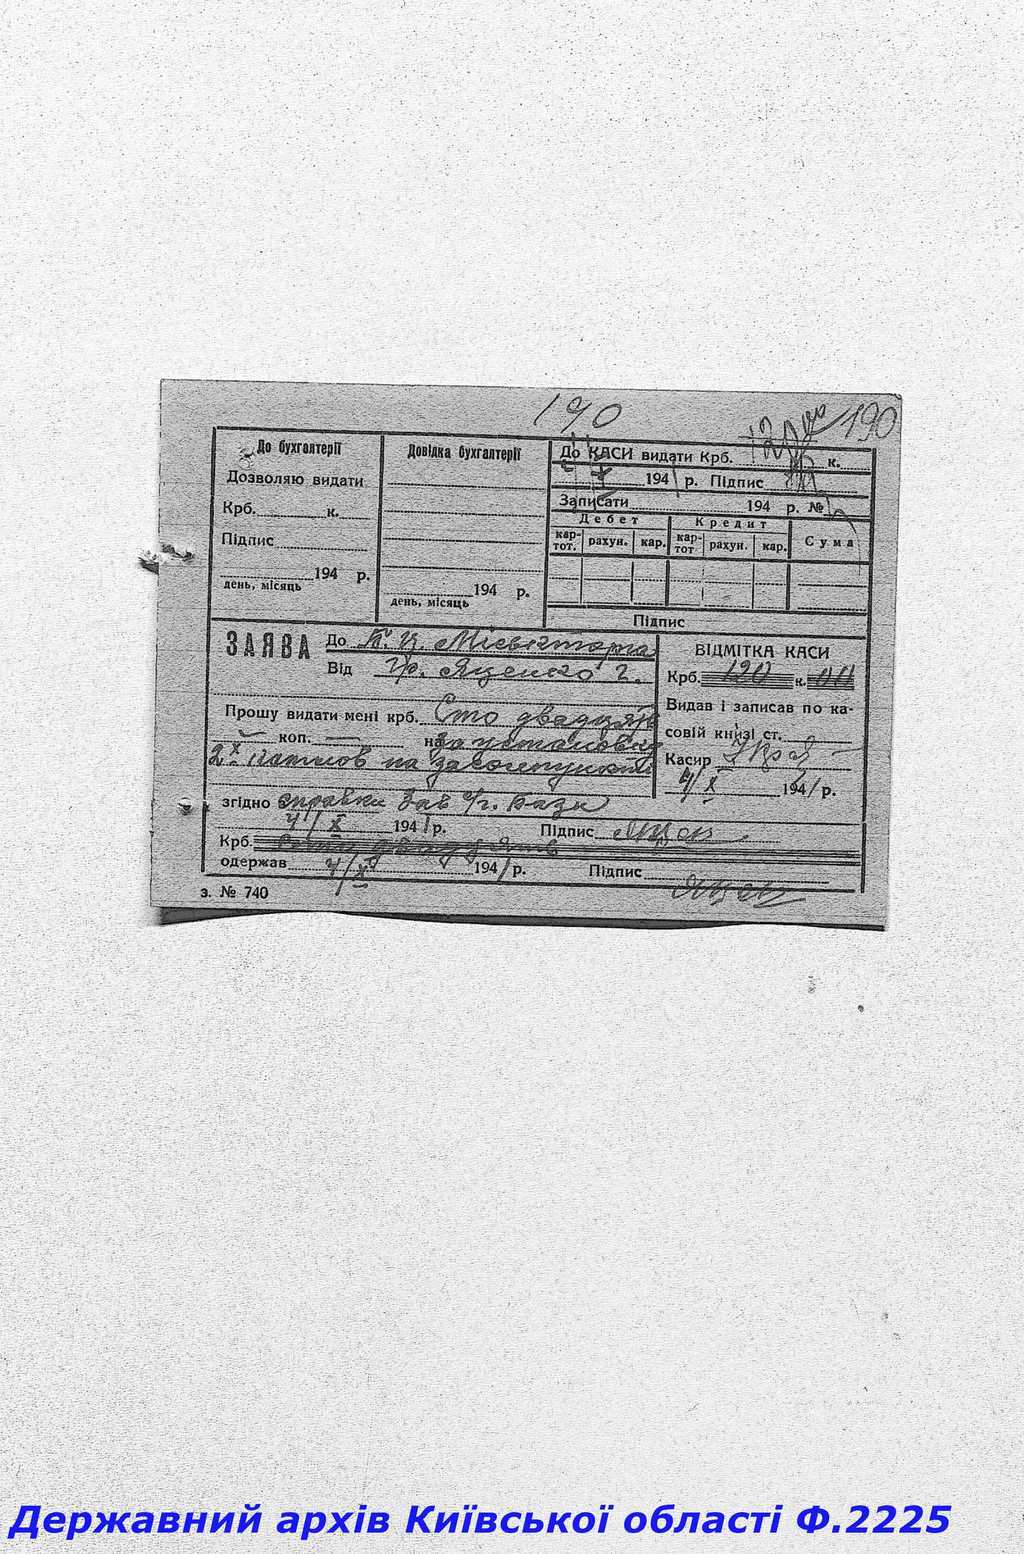 190
120 190
До бухгалтерії
Дозволяю видати
Крб. к.
Підпис
194 р.
день, місяць
Довідка бухгалтерії
194 р.
день, місяць
До КАСИ видати Крб. к.
1941 р. Підпис
Записати 194 р. №
Дебет Кредит Сума
кар-тот. рахун. кар. кар-тот рахун. кар.
Підпис
ЗАЯВА До Б. Ц. Міськторга
Від Гр. Яценко Г.
Прошу видати мені крб. Сто двадцять
— коп. — на за установку
2х на
згідно справки Зав Бази
4/X 1941 р. Підпис Яцен
Крб. Сто двадцять
одержав 4/X 1941 р. Підпис Яцен
ВІДМІТКА КАСИ
Крб. 120 к. 00
Видав і записав по ка-
совій книзі ст.
Касир
4/X 1941 р.
з. № 740
Державний архів Київської області Ф.2225